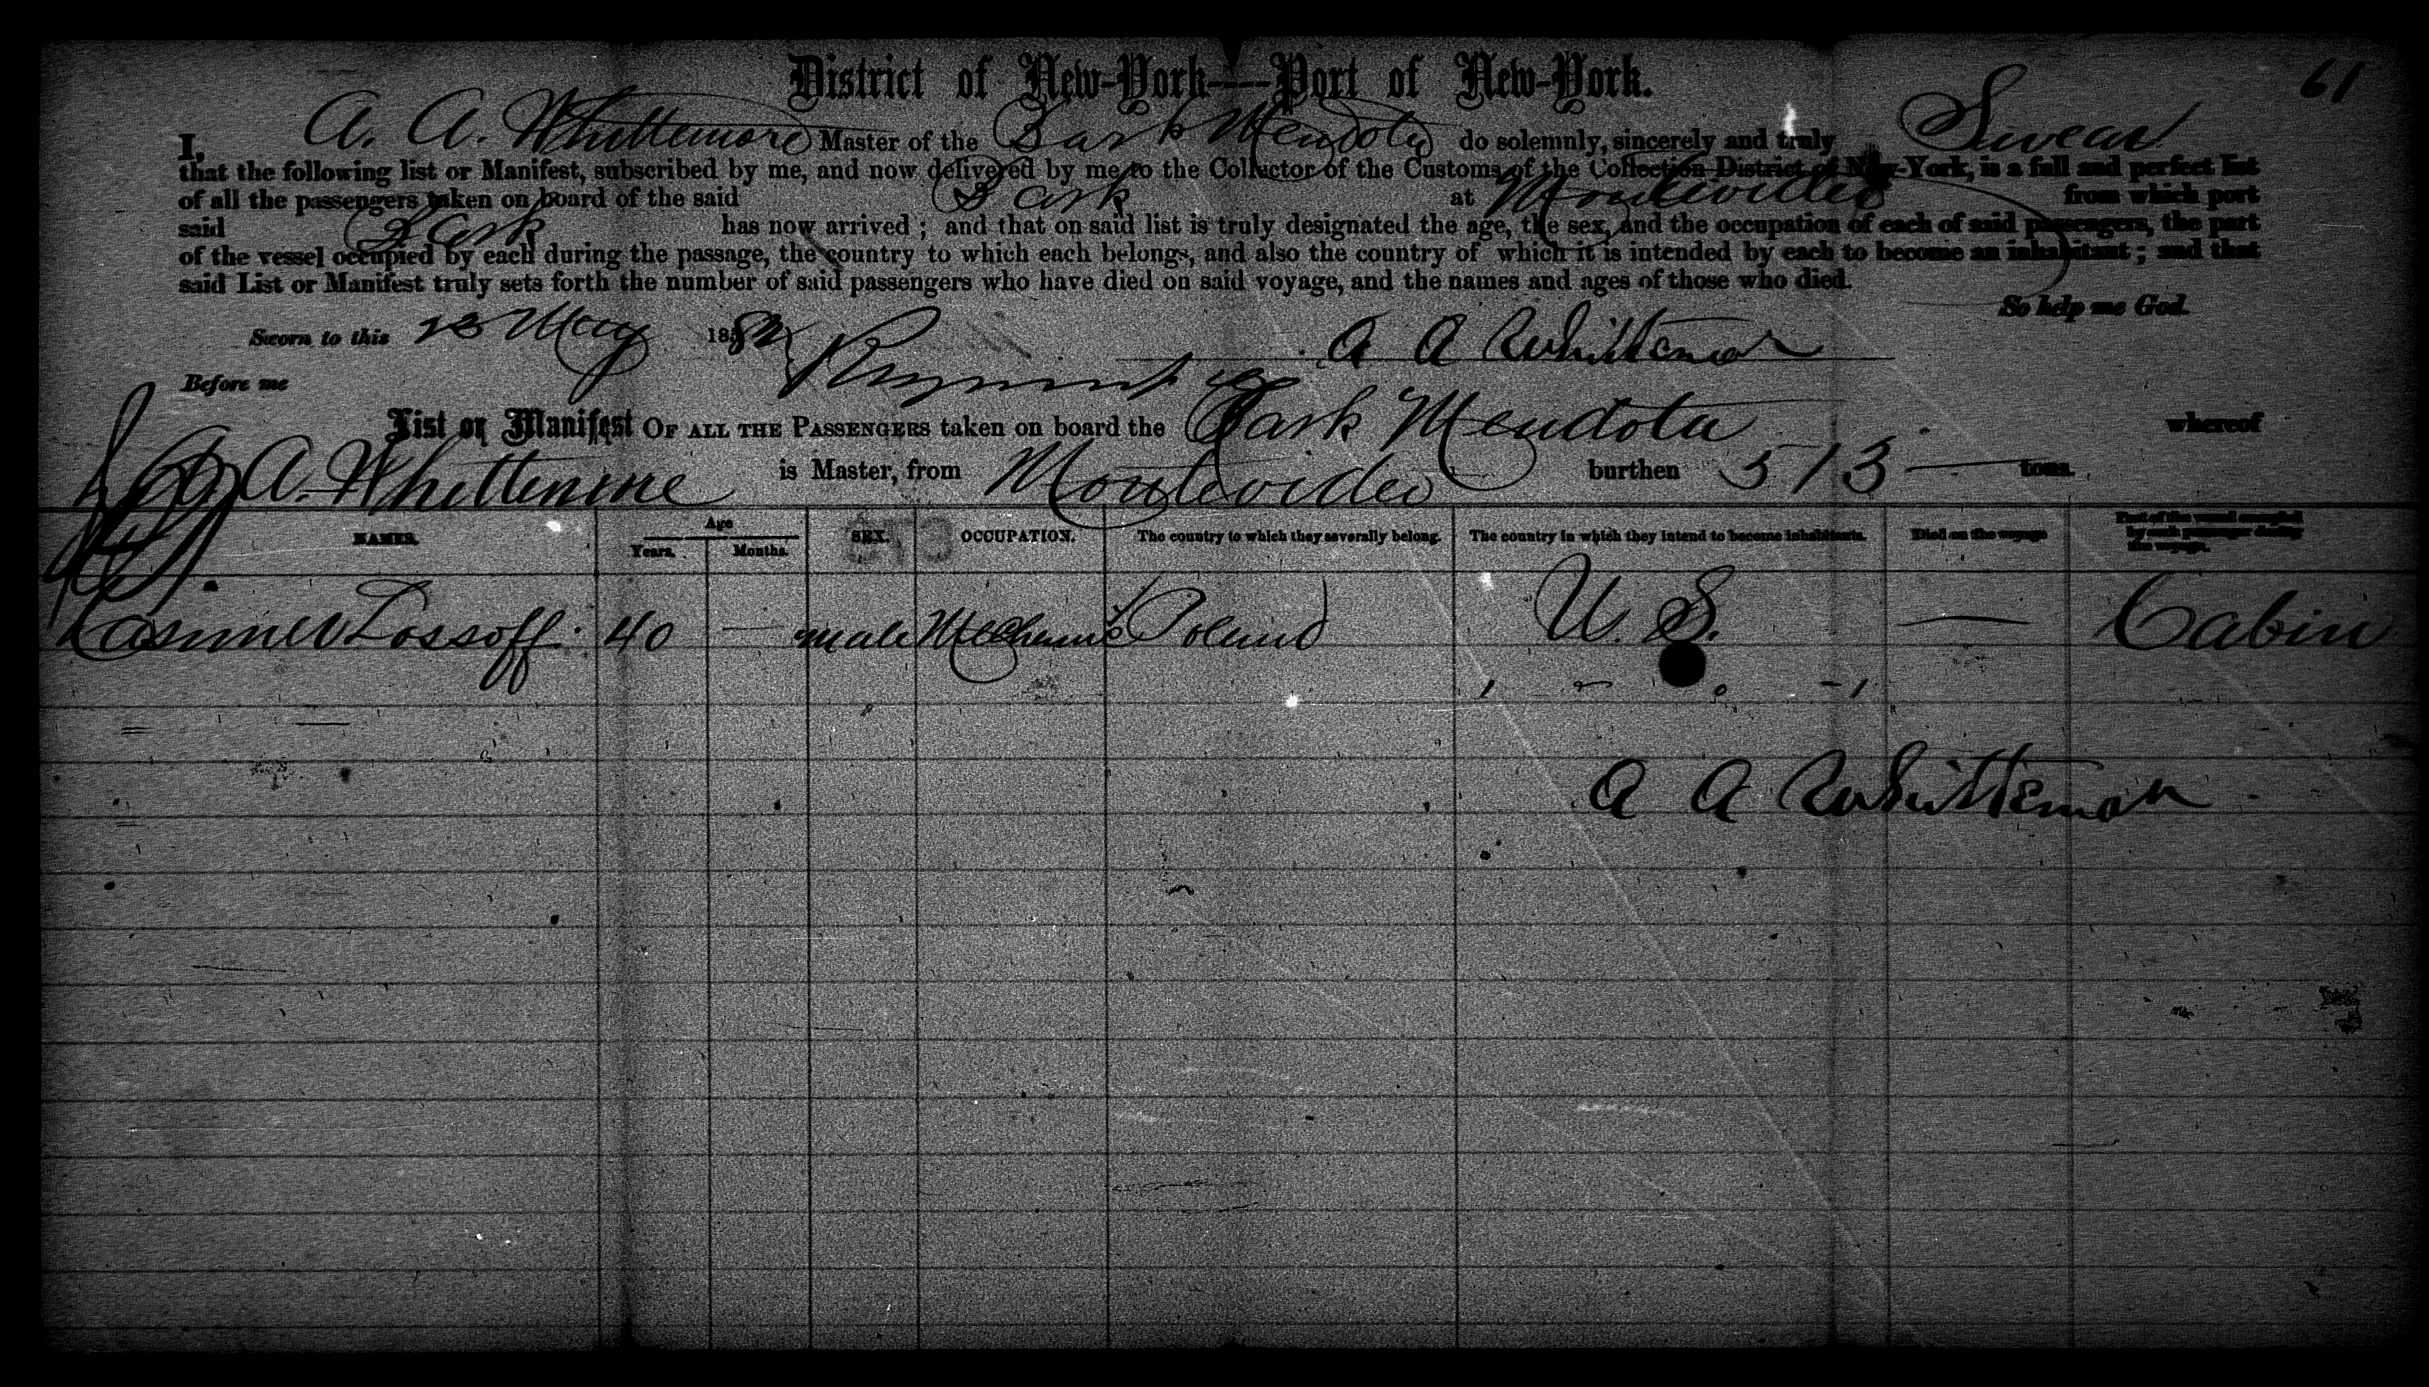 61
District of New-York—Port of New-York.
I, A. A. Whittemore Master of the Bark Mendota do solemnly, sincerely and truly Swear
that the following list or Manifest, subscribed by me, and now delivered by me to the Collector of the Customs of the Collection District of New-York, is a full and perfect list
of all the passengers taken on board of the said Bark at Montevideo from which port
said Bark has now arrived ; and that on said list is truly designated the age, the sex, and the occupation of each of said passengers, the part
of the vessel occupied by each during the passage, the country to which each belongs, and also the country of which it is intended by each to become an inhabitant ; and that
said List or Manifest truly sets forth the number of said passengers who have died on said voyage, and the names and ages of those who died.
So help me God.
Sworn to this May 1882 A A Whittemore
Before me
List or Manifest OF ALL THE PASSENGERS taken on board the Bark Mendota whereof
A. A. Whittemore is Master, from Montevideo burthen 513 — tons.
NAMES. Age Years. Months. SEX. OCCUPATION. The country to which they severally belong. The country in which they intend to become inhabitants. Died on the voyage Part of the vessel occupied by each passenger during the voyage.
Casimer Lossoff. 40 — male Mechanic Poland U. S. — Cabin
A A Whittemore